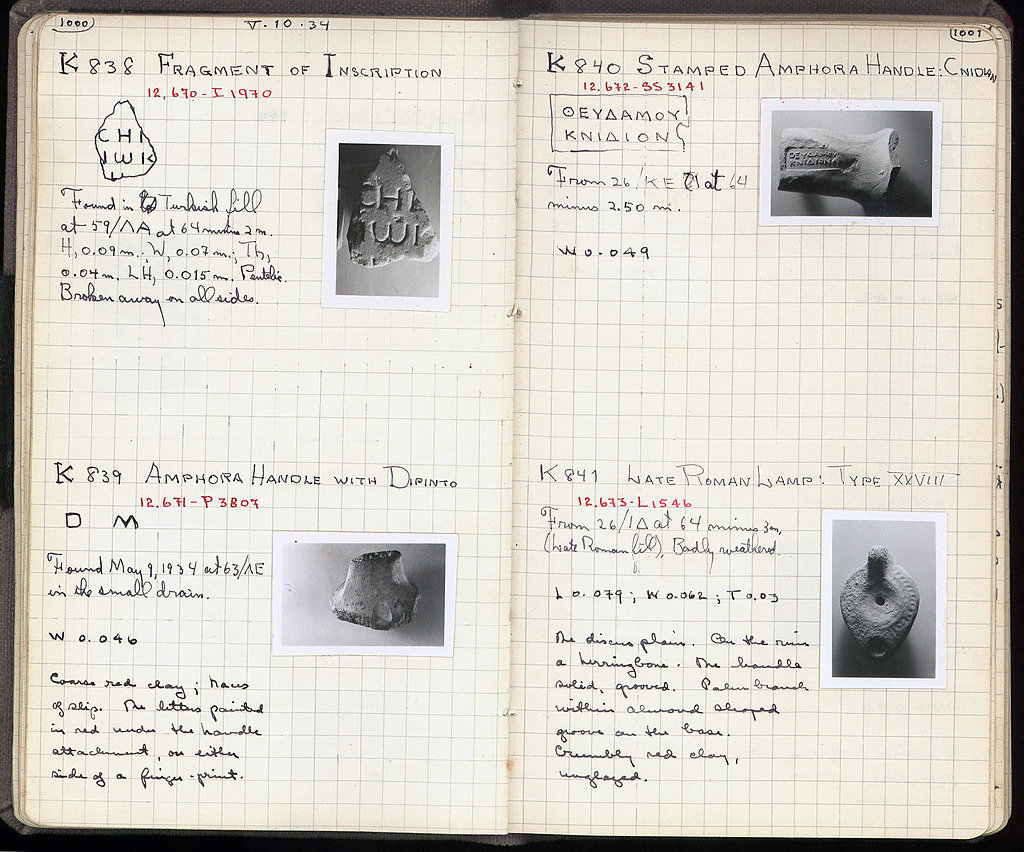 1000
V · 10 · 34
K 838 FRAGMENT OF INSCRIPTION
12,670 - I 1970
CHI
IWK
Found in Turkish fill
at 59/ΛΑ at 64 minus 2 m.
H, 0.09 m.; W, 0.07 m.; Th,
0.04 m. LH, 0.015 m. Pentelic.
Broken away on all sides.
CHI
IWI
K 839 AMPHORA HANDLE WITH DIPINTO
12,671 - P 3807
D M
Found May 9, 1934 at 63/ΛΕ
in the small drain.
W 0.046
Coarse red clay; traces
of slip. The letters painted
in red under the handle
attachment, on either
side of a finger-print.
1001
K 840 STAMPED AMPHORA HANDLE: CNIDIAN
12,672 - SS 3141
ΘΕΥΔΑΜΟΥ
ΚΝΙΔΙΟΝ
From 26/ΚΕ at 64
minus 2.50 m.
W 0.049
ΘΕΥΔΑΜΟΥ
ΚΝΙΔΙΟΝ
K 841 LATE ROMAN LAMP: TYPE XXVIII
12,673 - L 1546
From 26/ΙΔ at 64 minus 3m,
(Late Roman fill), Badly weathered.
L 0.079; W 0.062; T 0.03
The discus plain. On the rim
a herringbone. The handle
solid, grooved. Palm branch
within almond shaped
groove on the base.
Crumbly red clay,
unglazed.